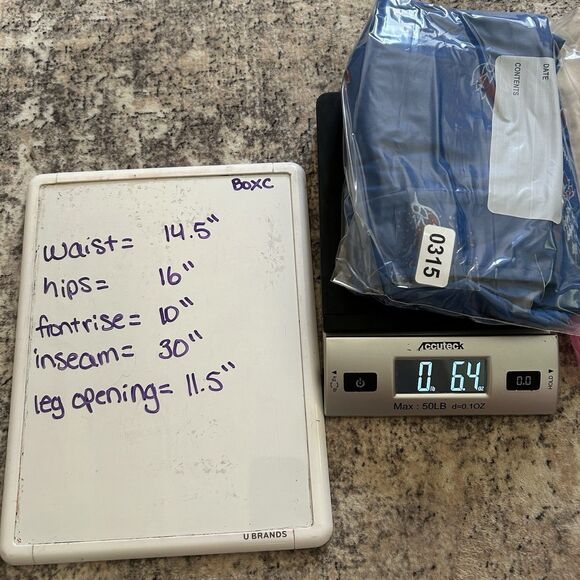 BOXC
waist= 14.5"
hips= 16"
frontrise= 10"
inseam= 30"
leg opening= 11.5"
U BRANDS
DATE
CONTENTS
0315
Accuteck
0 lb 6.4 oz
0.0
HOLD
Max : 50LB d=0.1OZ